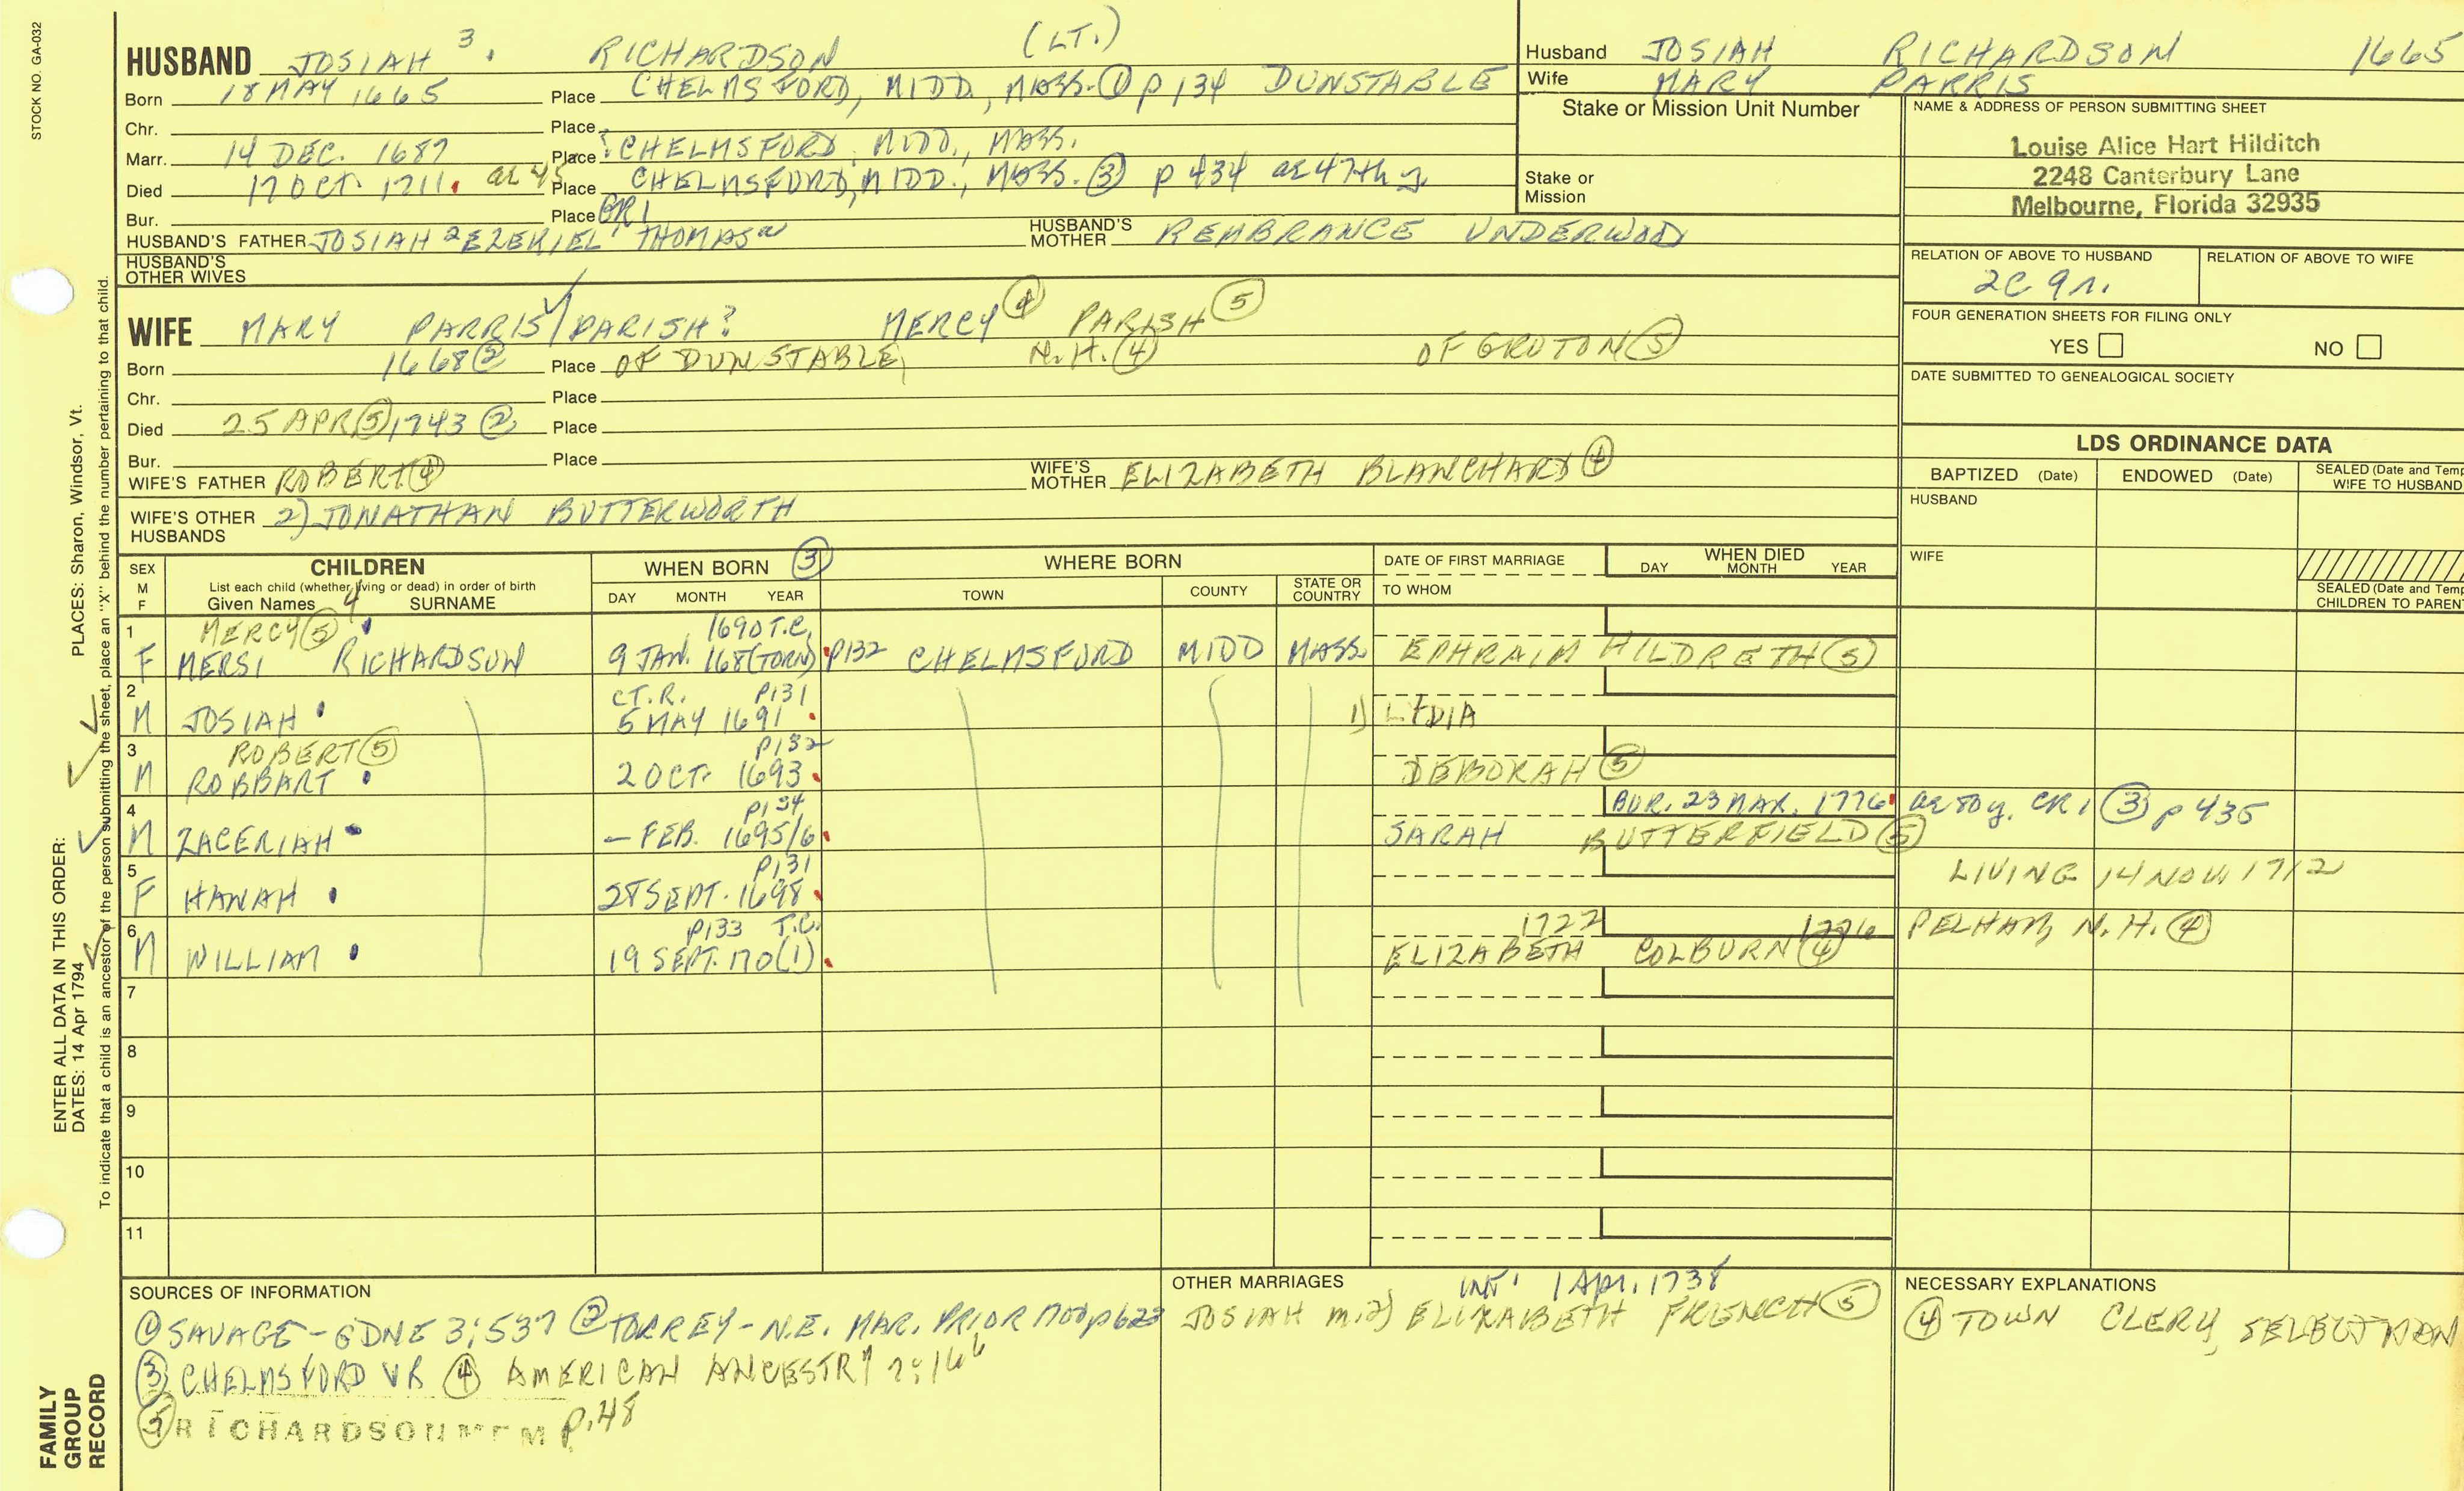 STOCK NO. GA-032
HUSBAND JOSIAH 3. RICHARDSON (LT.)
Born 18 MAY 1665 Place CHELMSFORD, MIDD., MASS. ① p 134 DUNSTABLE
Chr. Place
Marr. 14 DEC. 1687 Place CHELMSFORD, MIDD., MASS.
Died 17 OCT. 1711. ae 45 Place CHELMSFORD, MIDD., MASS. ③ p 434 ae 47th y
Bur. Place GR1
HUSBAND'S FATHER JOSIAH 2 EZEKIEL 1 THOMAS HUSBAND'S MOTHER REMBRANCE UNDERWOOD
HUSBAND'S OTHER WIVES
WIFE MARY PARRIS/PARISH? MERCY ④ PARISH ⑤
Born 1668 ② Place OF DUNSTABLE, N.H. ④ OF GROTON ⑤
Chr. Place
Died 25 APR ⑤ 1743 ② Place
Bur. Place
WIFE'S FATHER ROBERT ④ WIFE'S MOTHER ELIZABETH BLANCHARD ④
WIFE'S OTHER HUSBANDS 2) JONATHAN BUTTERWORTH
Husband JOSIAH RICHARDSON 1665
Wife MARY PARRIS
Stake or Mission Unit Number
Stake or Mission
NAME & ADDRESS OF PERSON SUBMITTING SHEET
Louise Alice Hart Hilditch
2248 Canterbury Lane
Melbourne, Florida 32935
RELATION OF ABOVE TO HUSBAND RELATION OF ABOVE TO WIFE
2C 9r.
FOUR GENERATION SHEETS FOR FILING ONLY
YES NO
DATE SUBMITTED TO GENEALOGICAL SOCIETY
LDS ORDINANCE DATA
BAPTIZED (Date) ENDOWED (Date) SEALED (Date and Temp
WIFE TO HUSBAND
HUSBAND
WIFE
SEALED (Date and Temp
CHILDREN TO PAREN
SEX M F CHILDREN WHEN BORN ③ WHERE BORN DATE OF FIRST MARRIAGE WHEN DIED
List each child (whether living or dead) in order of birth
Given Names 4 SURNAME DAY MONTH YEAR TOWN COUNTY STATE OR COUNTRY TO WHOM DAY MONTH YEAR
1 MERCY ⑤ 1690 T.C.
F MERSI RICHARDSON 9 JAN. 168(TORN) P132 CHELMSFORD MIDD MASS. EPHRAIM HILDRETH ⑤
2 CT.R. P131
M JOSIAH 5 MAY 1691 1) LYDIA
3 ROBERT ⑤ P132
M ROBBART 2 OCT. 1693 DEBORAH ⑤
4 P134 BUR. 23 MAR. 1776 ae 80y. CR1 ③ p 435
M ZACERIAH — FEB. 1695/6 SARAH BUTTERFIELD ⑤
5 P131 LIVING 14 NOV. 1712
F HANAH 28 SEPT. 1698
6 P133 T.C. 1722 1776 PELHAM, N.H. ④
M WILLIAM 19 SEPT. 170(1) ELIZABETH COLBURN ④
7
8
9
10
11
SOURCES OF INFORMATION
① SAVAGE - GDNE 3:537 ② TORREY - N.E. MAR. PRIOR 1700 p 623
③ CHELMSFORD VR ④ AMERICAN ANCESTRY
⑤ RICHARDSON MEM P.48
OTHER MARRIAGES INT. 1 Apr. 1738
JOSIAH m. 2) ELIZABETH FRENCH ⑤
NECESSARY EXPLANATIONS
④ TOWN CLERK, SELECTMAN
PLACES: Sharon, Windsor, Vt.
ENTER ALL DATA IN THIS ORDER:
DATES: 14 Apr 1794
To indicate that a child is an ancestor of the person submitting the sheet, place an "X" behind the number pertaining to that child.
FAMILY
GROUP
RECORD